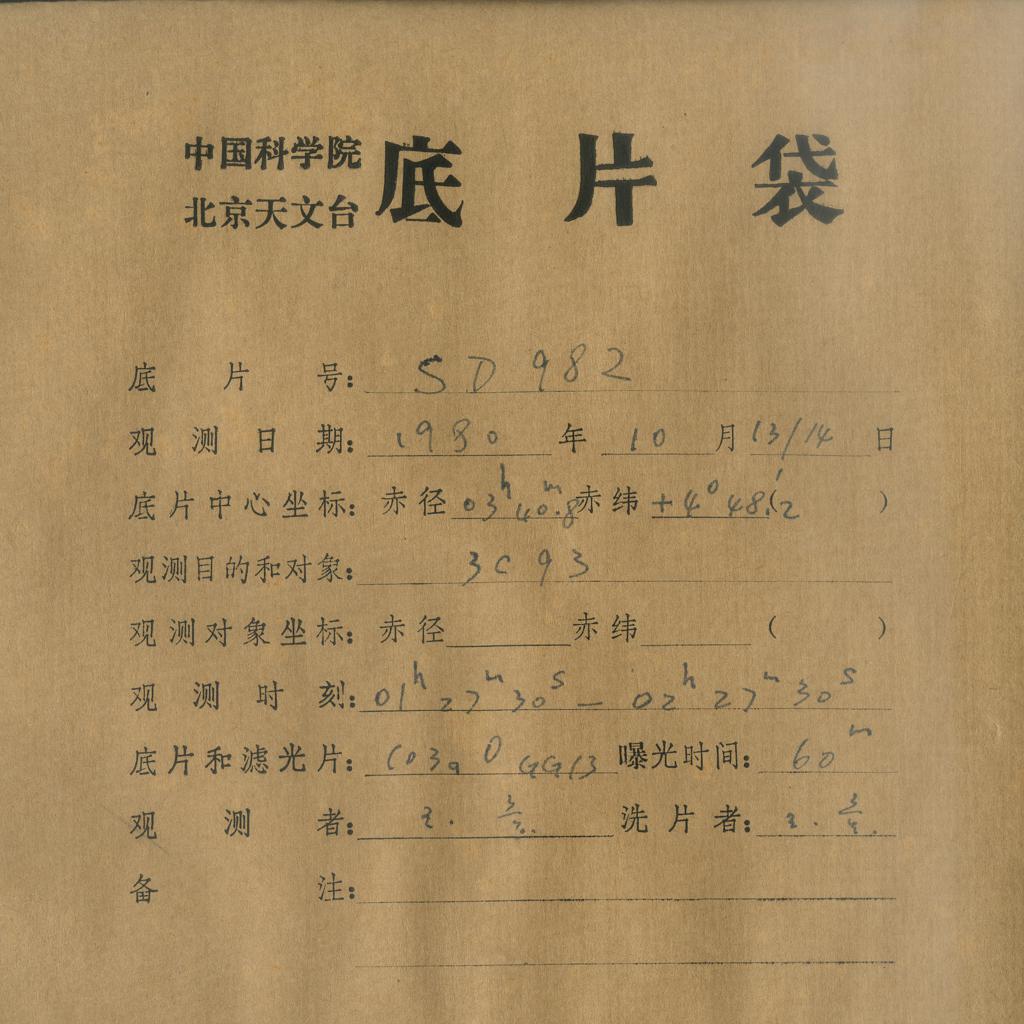 中国科学院
北京天文台
底片袋
底片号：SD 982
观测日期：1980年10月13/14日
底片中心坐标：赤径03ʰ40ᵐ.8赤纬+4°48′.2（ ）
观测目的和对象：3C93
观测对象坐标：赤径 赤纬 （ ）
观测时刻：01ʰ27ᵐ30ˢ — 02ʰ27ᵐ30ˢ
底片和滤光片：103a O GG13 曝光时间：60ᵐ
观测者： 洗片者：
备注：